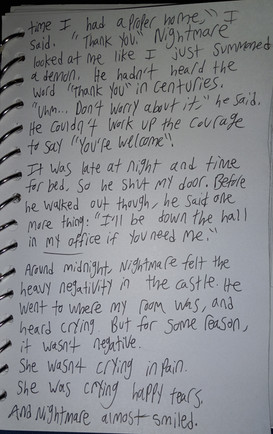 time I had a proper home," I
said. "Thank you." Nightmare
looked at me like I just summoned
a demon. He hadn't heard the
word "Thank you" in centuries.
"Uhm... Don't worry about it," he said.
He couldn't work up the courage
to say "You're welcome".
It was late at night and time
for bed, so he shut my door. Before
he walked out though, he said one
more thing: "I'll be down the hall
in my office if you need me."
Around midnight, Nightmare felt the
heavy negativity in the castle. He
went to where my room was, and
heard crying. But for some reason,
it wasn't negative.
She wasn't crying in pain.
She was crying happy tears.
And Nightmare almost smiled.